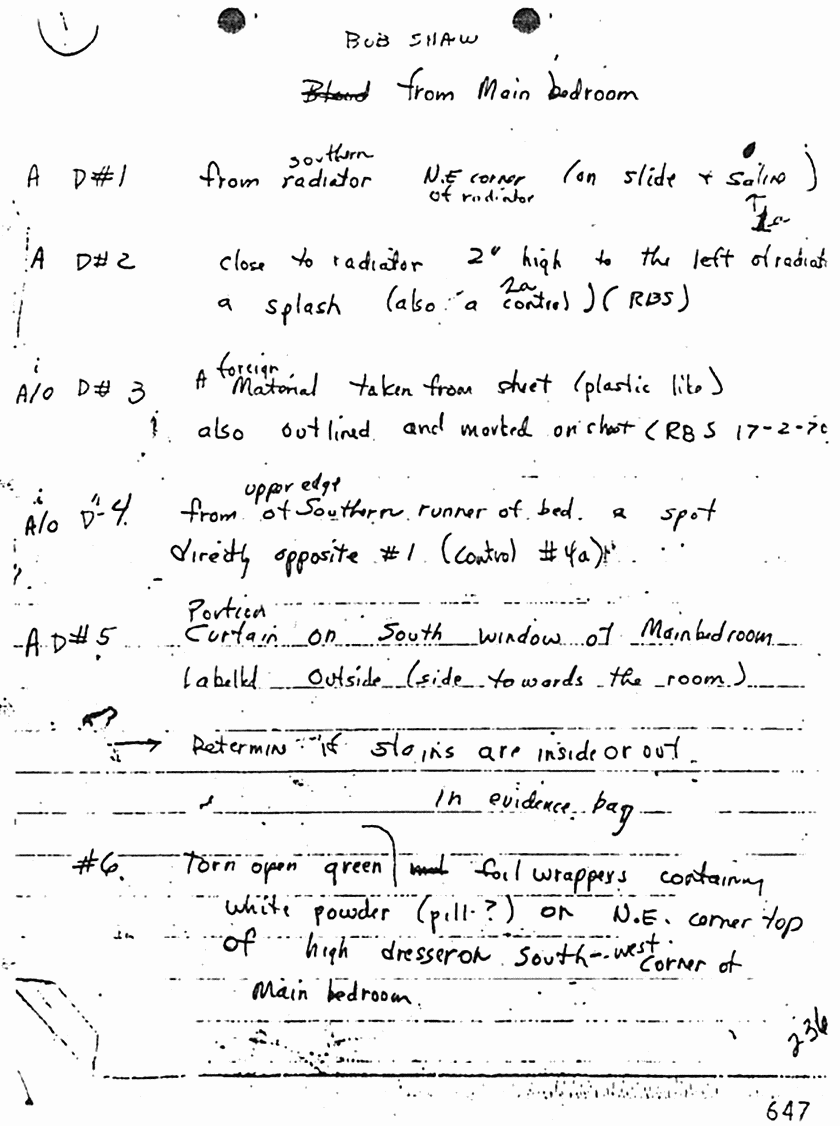 1
BOB SHAW
Blood from Main bedroom
A D#1 from southern radiator N.E corner of radiator (on slide + Saline)
1a
A D#2 close to radiator 2" high to the left of radiat
a splash (also a 2a control) (RBS)
A/o D#3 A foreign Material taken from sheet (plastic like)
also outlined and marked on sheet (RBS 17-2-70
A/o D-4 from upper edge of Southern runner of bed. a spot
directly opposite #1 (control #4a)
A D#5 Portion Curtain on South window of Main bedroom
Labelld Outside (side towards the room)
A?
→ Determin if stains are inside or out
In evidence bag
#6. Torn open green foil wrappers containing
white powder (pill-?) on N.E. corner top
of high dresser on South-west corner of
Main bedroom.
236
647